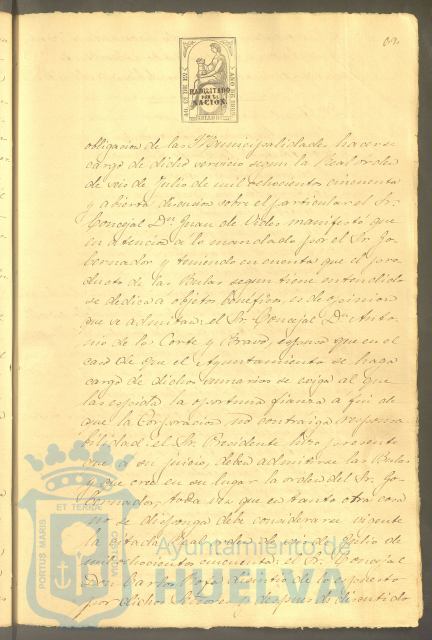 HABILITADO
POR LA
NACION.
obligacion de las Municipalidades hacerse
cargo de dicho servicio segun la Real orden
de seis de Julio de mil ochocientos cincuenta
y abierta discusion sobre el particular el Sr.
Concejal Dn. Juan de Vides manifestó que
en atencion a lo mandado por el Sr. Go-
bernador y teniendo en cuenta que el pro-
ducto de las Bulas segun tiene entendido
se dedica a objetos benéficos, es de opinion
que se admitan: el Sr. Concejal Dn. Anto-
nio de la Corte y Bravo, expuso que en el
caso de que el Ayuntamiento se haga
cargo de dichos sumarios se exija al que
las espida la oportuna fianza a fin de
que la Corporacion no contraiga responsa-
bilidad: el Sr. Presidente hizo presente
que a su juicio, deben admitirse las Bulas
y que cree en su lugar la orden del Sr. Go-
bernador, toda vez que en tanto otra cosa
no se disponga debe considerarse vigente
la citada Real orden de seis de Julio de
mil ochocientos cincuenta: el Sr. Concejal
Don Carlos disintio de lo espuesto
por dichos Señores y despues de discutido
PORTUS MARIS ET TERRAE CUSTODIA
Ayuntamiento de
HUELVA